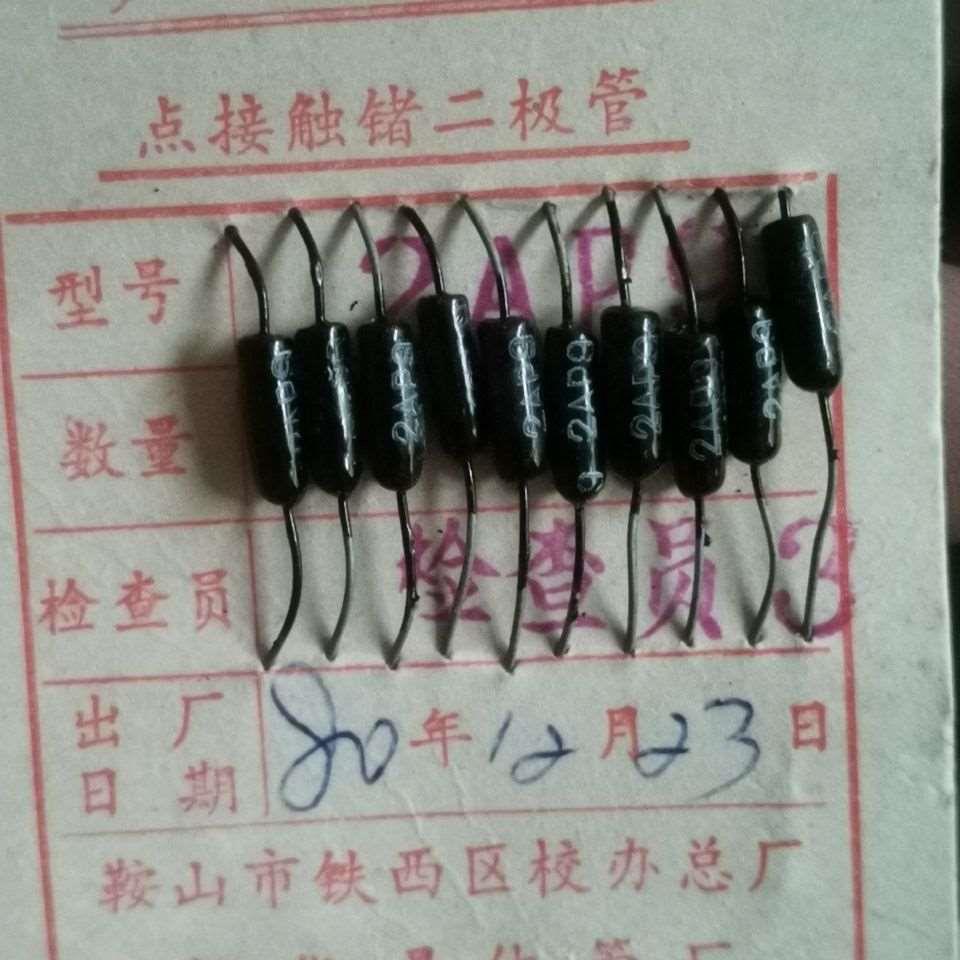 点接触锗二极管
型号 2AP9
2AP9 2AP9 2AP9 2AP9 2AP9 2AP9
数量
检查员 检查员 3
出厂日期 80年12月23日
鞍山市铁西区校办总厂